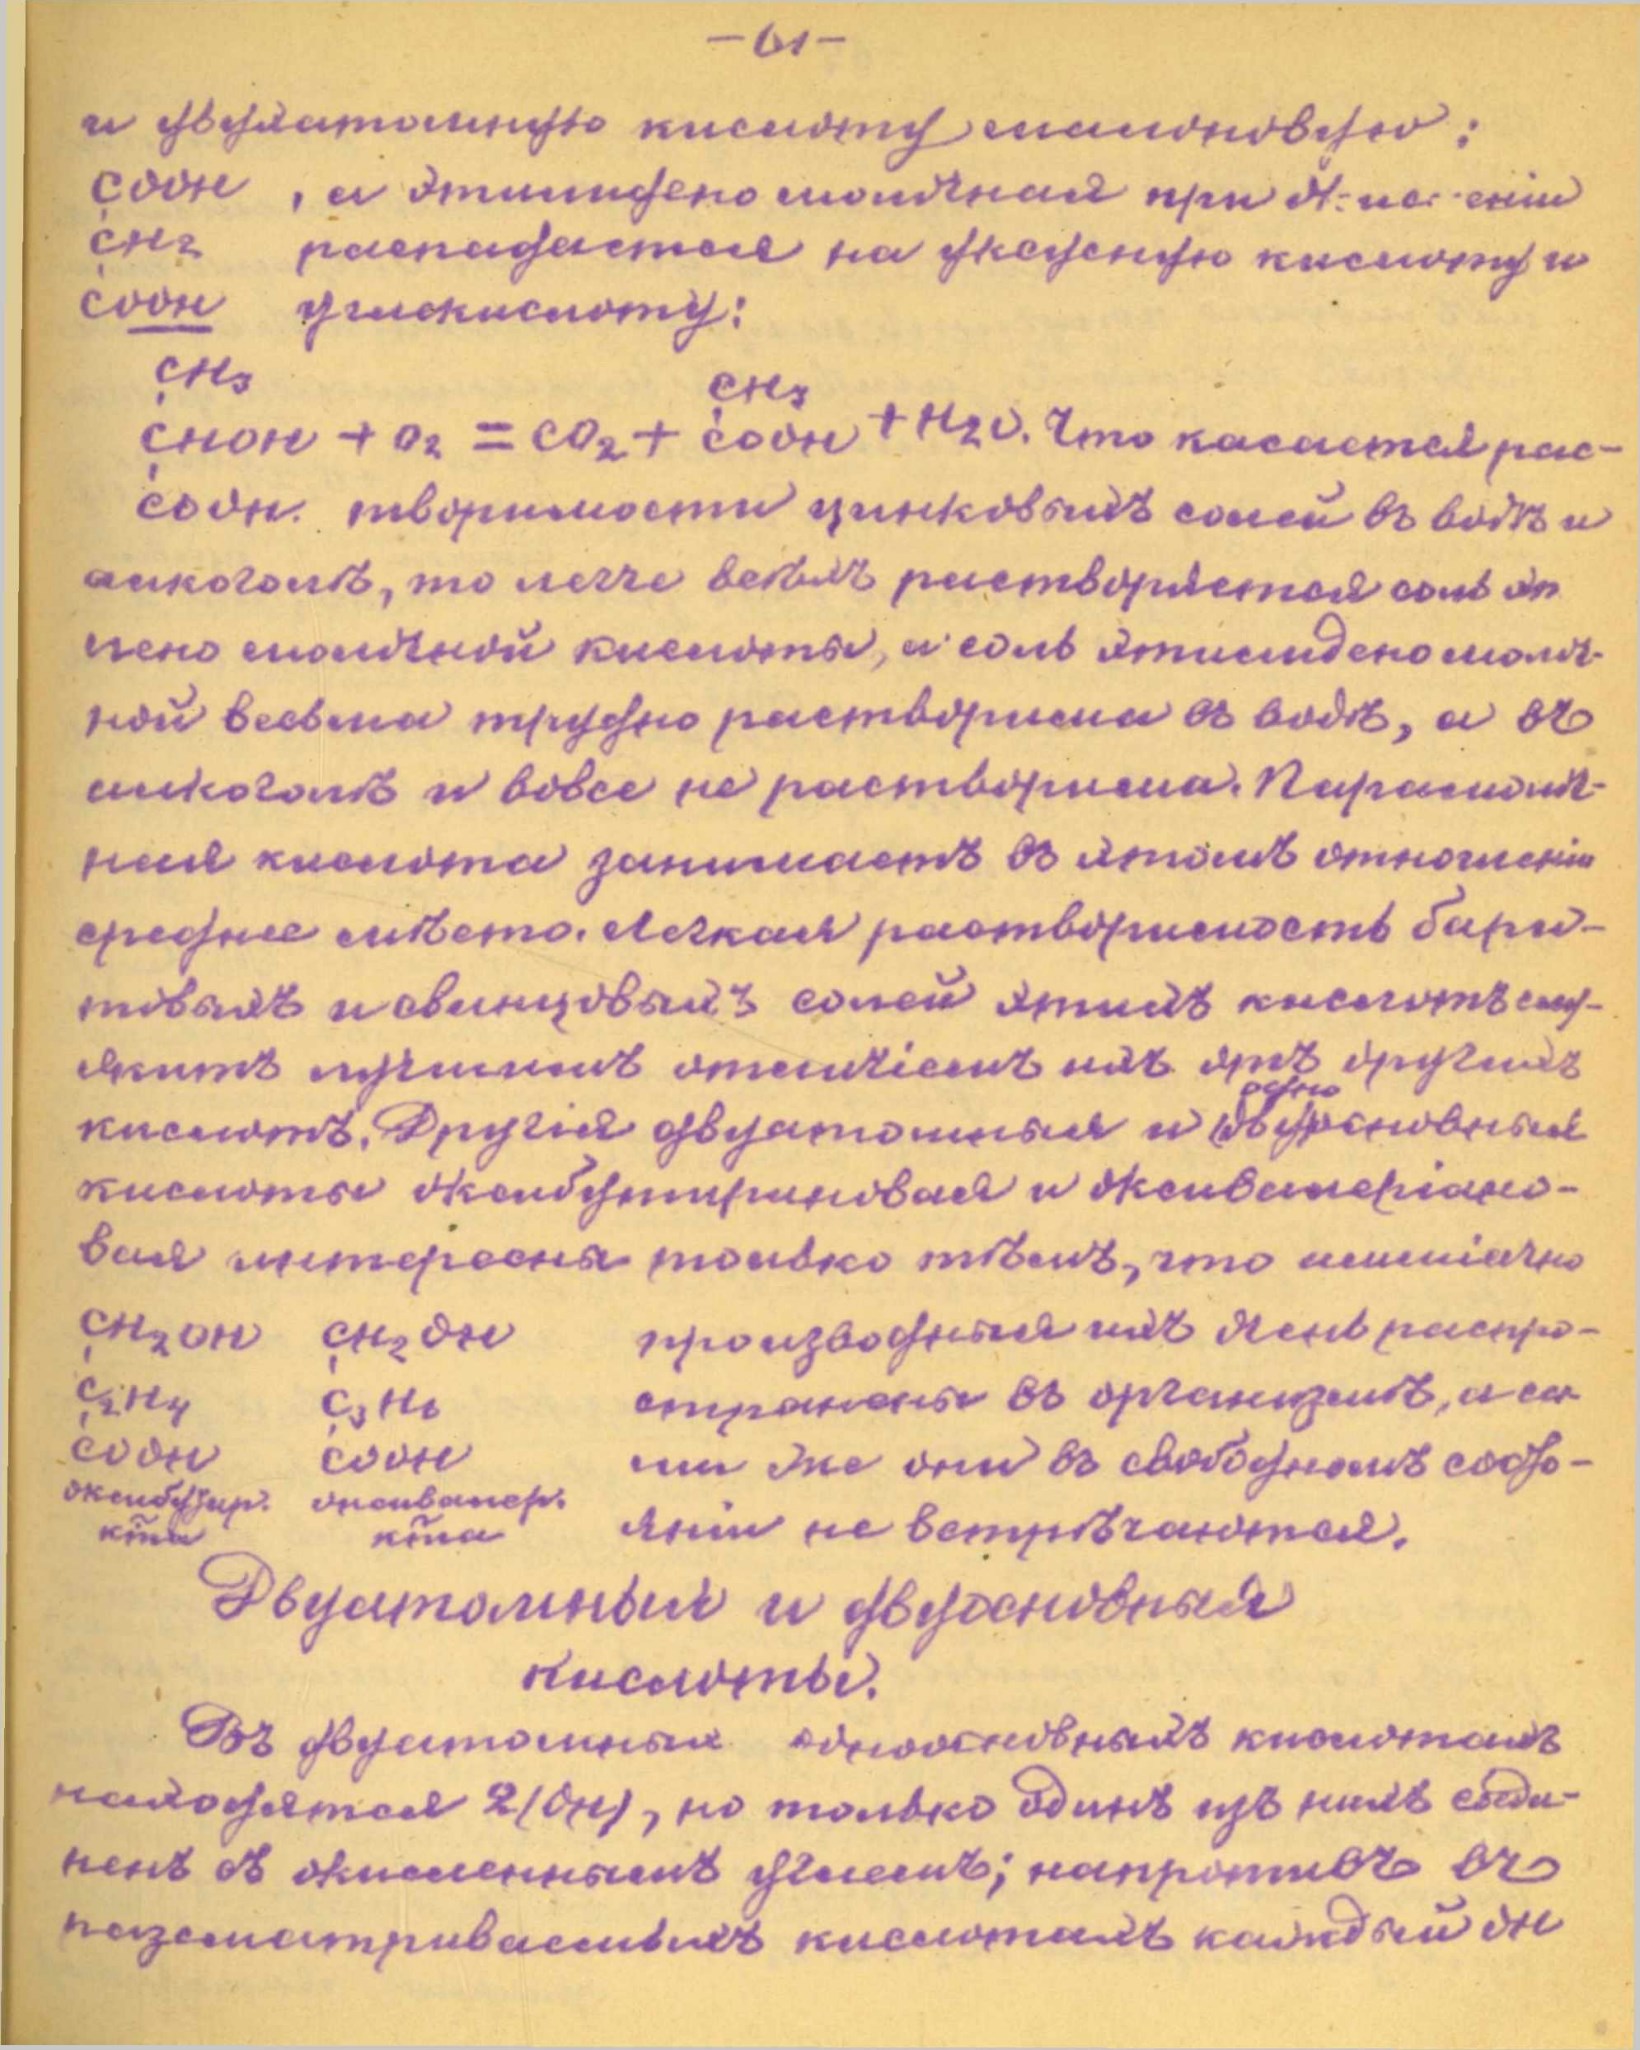 -61-
и двухатомную кислоту малоновую:
COOH , а этилидено молочная при
CH2 распадается на уксусную кислоту и
COOH углекислоту:
CH3 CH3
CHOH + O2 = CO2 + COOH + H2O. Что касается рас-
COOH. творимости цинковыхъ солей въ водѣ и
алкоголѣ, то легче всѣхъ растворяется соль эти
лено молочной кислоты, а соль этилиденомолоч-
ной весьма трудно растворима въ водѣ, а въ
алкоголѣ и вовсе не растворима. Парамолоч-
ная кислота занимаетъ въ этомъ отношеніи
среднее мѣсто. Легкая растворимость бари-
товыхъ и свинцовыхъ солей этихъ кислотъ слу-
житъ лучшимъ отличіемъ ихъ отъ другихъ
одно
кислотъ. Другія двуатомныя и двуосновныя
кислоты оксибутириновая и оксивалеріано-
вая интересны только тѣмъ, что амміачно
CH2OH CH2OH производныя ихъ очень распро-
C2H4 C3H6 странены въ организмѣ, а са
COOH COOH ми же они въ свободномъ состо-
оксибутир. оксивалер. яніи не встрѣчаются.
к͠та к͠та
Двуатомныя и двуосновныя
кислоты.
Въ двуатомныхъ одноосновныхъ кислотахъ
находятся 2(OH), но только одинъ изъ нихъ соеди-
ненъ съ окисленнымъ углемъ; напротивъ въ
разсматриваемыхъ кислотахъ каждый OH